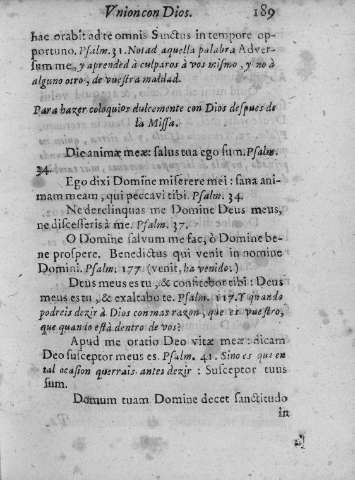 Vnion con Dios. 189
hac orabit ad te omnis Sanctus in tempore op-
portuno. Psalm. 31. Notad aquella palabra Adver-
sum me, y aprended à culparos à vos mismo, y no à
alguno otro, de vuestra maldad.
Para hazer coloquios dulcemente con Dios despues de
la Missa.
Dic animæ meæ: salus tua ego sum. Psalm.
34.
Ego dixi Domine miserere mei: sana ani-
mam meam, qui peccavi tibi. Psalm. 34.
Ne derelinquas me Domine Deus meus,
ne discesseris à me. Psalm. 37.
O Domine salvum me fac, ò Domine be-
ne prospere. Benedictus qui venit in nomine
Domini. Psalm. 177 (venit, ha venido.)
Deus meus es tu, & confitebor tibi: Deus
meus es tu, & exaltabo te. Psalm. 117. Y quando
podreis dezir à Dios con mas razon, que es vuestro,
que quando està dentro de vos?
Apud me oratio Deo vitæ meæ: dicam
Deo susceptor meus es. Psalm. 41. Sino es que en
tal ocasion querrais antes dezir: Susceptor tuus
sum.
Domum tuam Domine decet sanctitudo
in